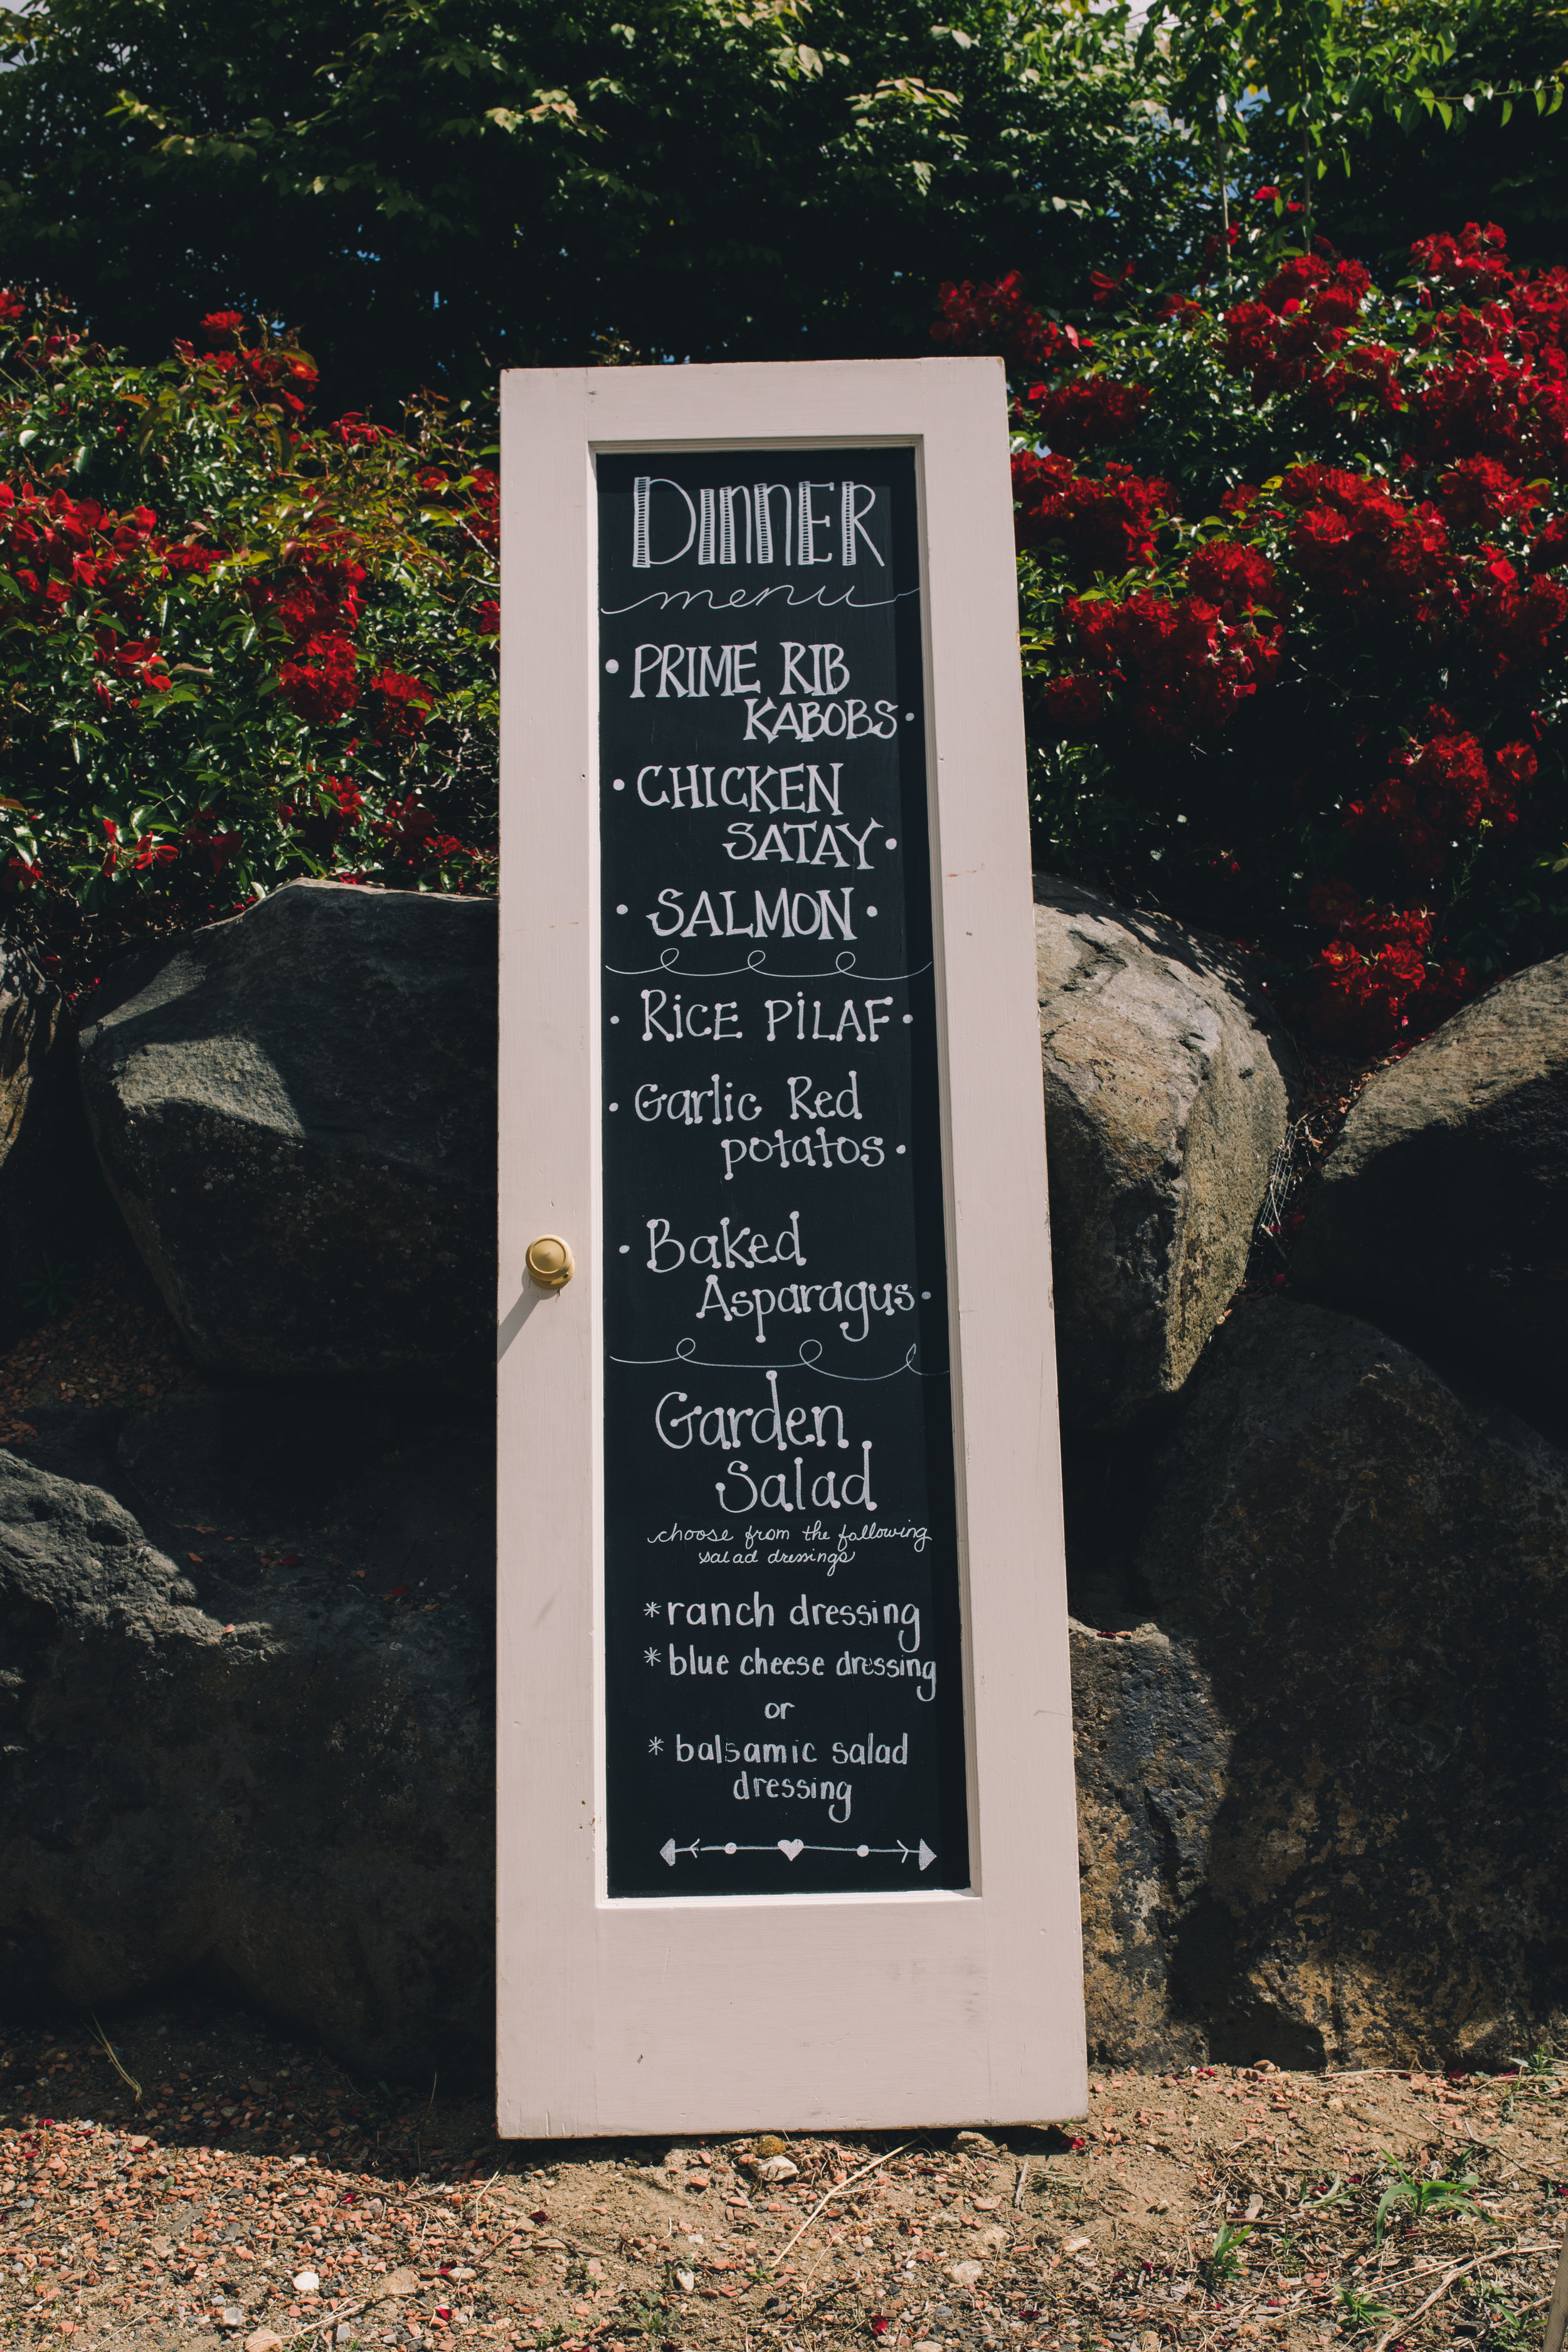 DINNER
menu
• PRIME RIB
KABOBS •
• CHICKEN
SATAY •
• SALMON •
• RICE PILAF •
• Garlic Red
potatos •
• Baked
Asparagus •
Garden
Salad
choose from the following
salad dressings
* ranch dressing
* blue cheese dressing
or
* balsamic salad
dressing